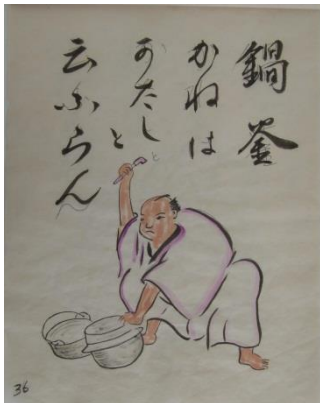 鍋釜
かねは
おたし
と
云ふらん
36